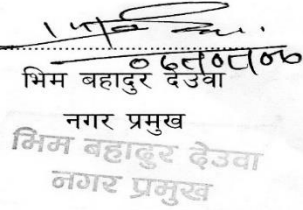 भिम बहादुर देउवा
नगर प्रमुख
भिम बहादुर देउवा
नगर प्रमुख